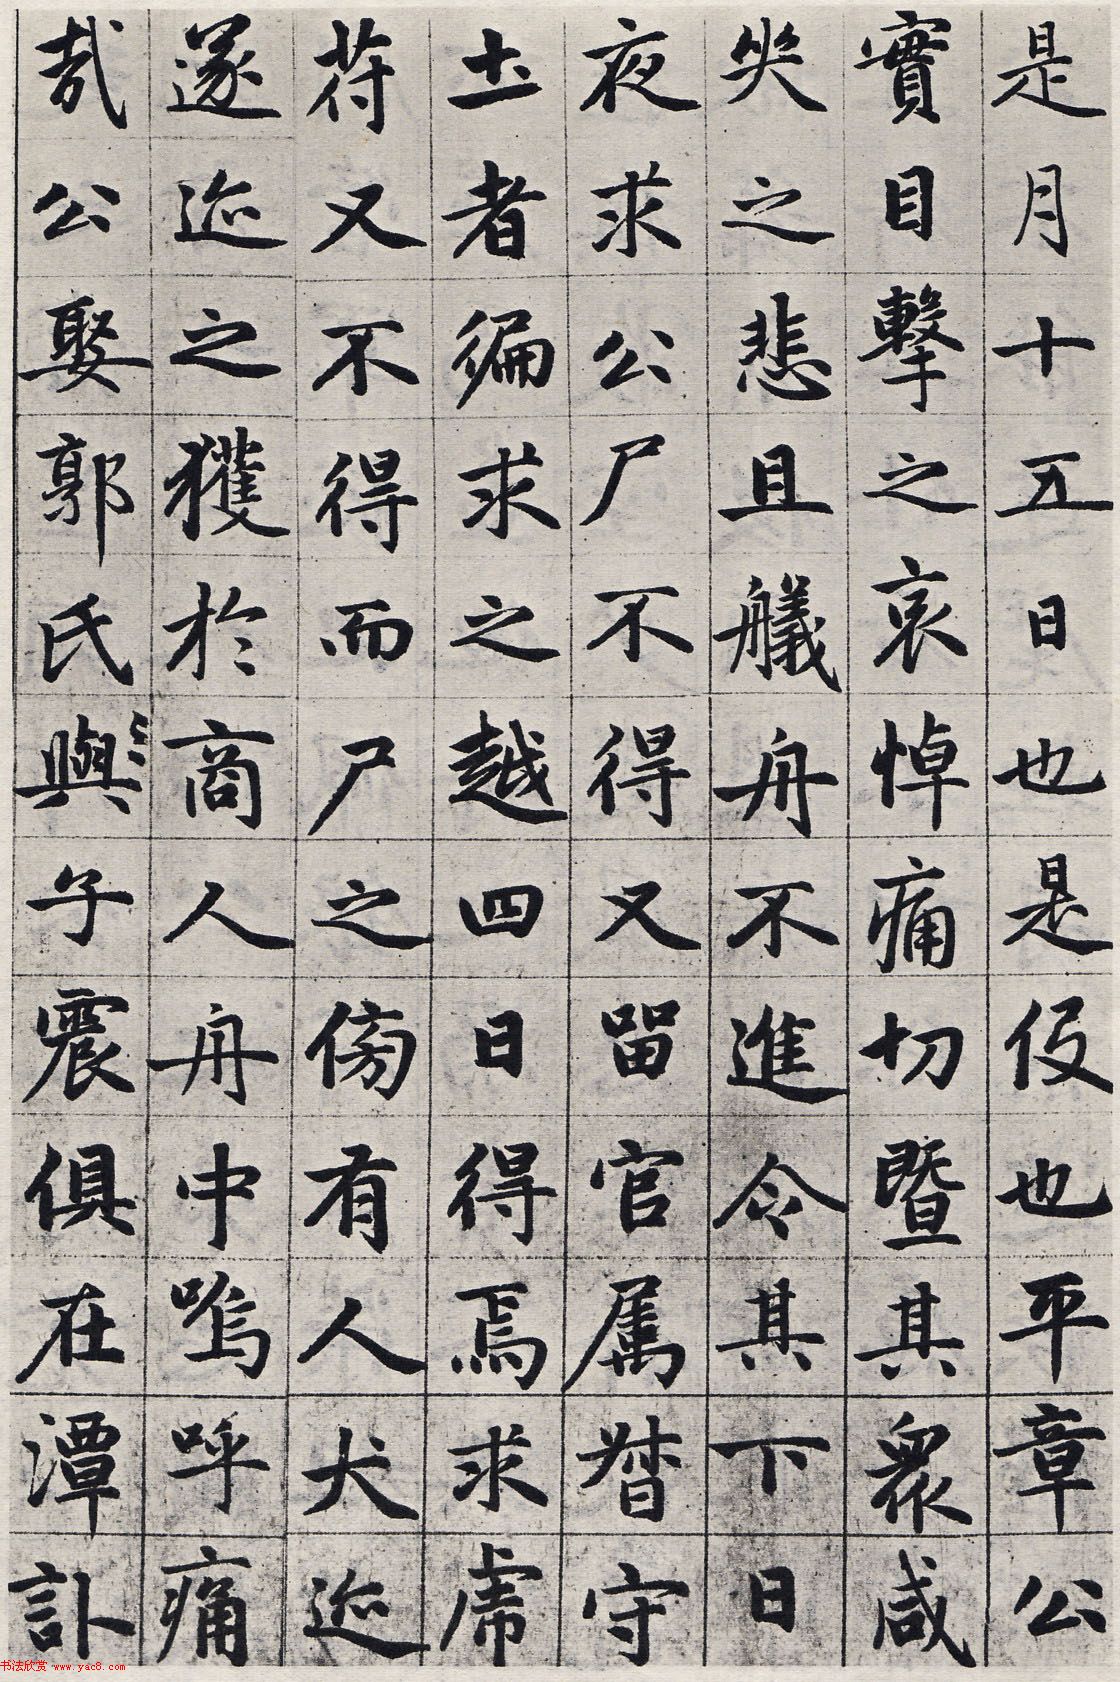 是月十五日也是役也平章公
實目擊之哀悼痛切暨其衆咸
失之悲且艤舟不進令其下日
夜求公尸不得又留官属督守
土者徧求之越四日得焉求虎
符又不得而尸之傍有人犬迹
遂迹之獲於商人舟中嗚呼痛
哉公娶郭氏與子震俱在潭訃
书法欣赏 www.yac8.com